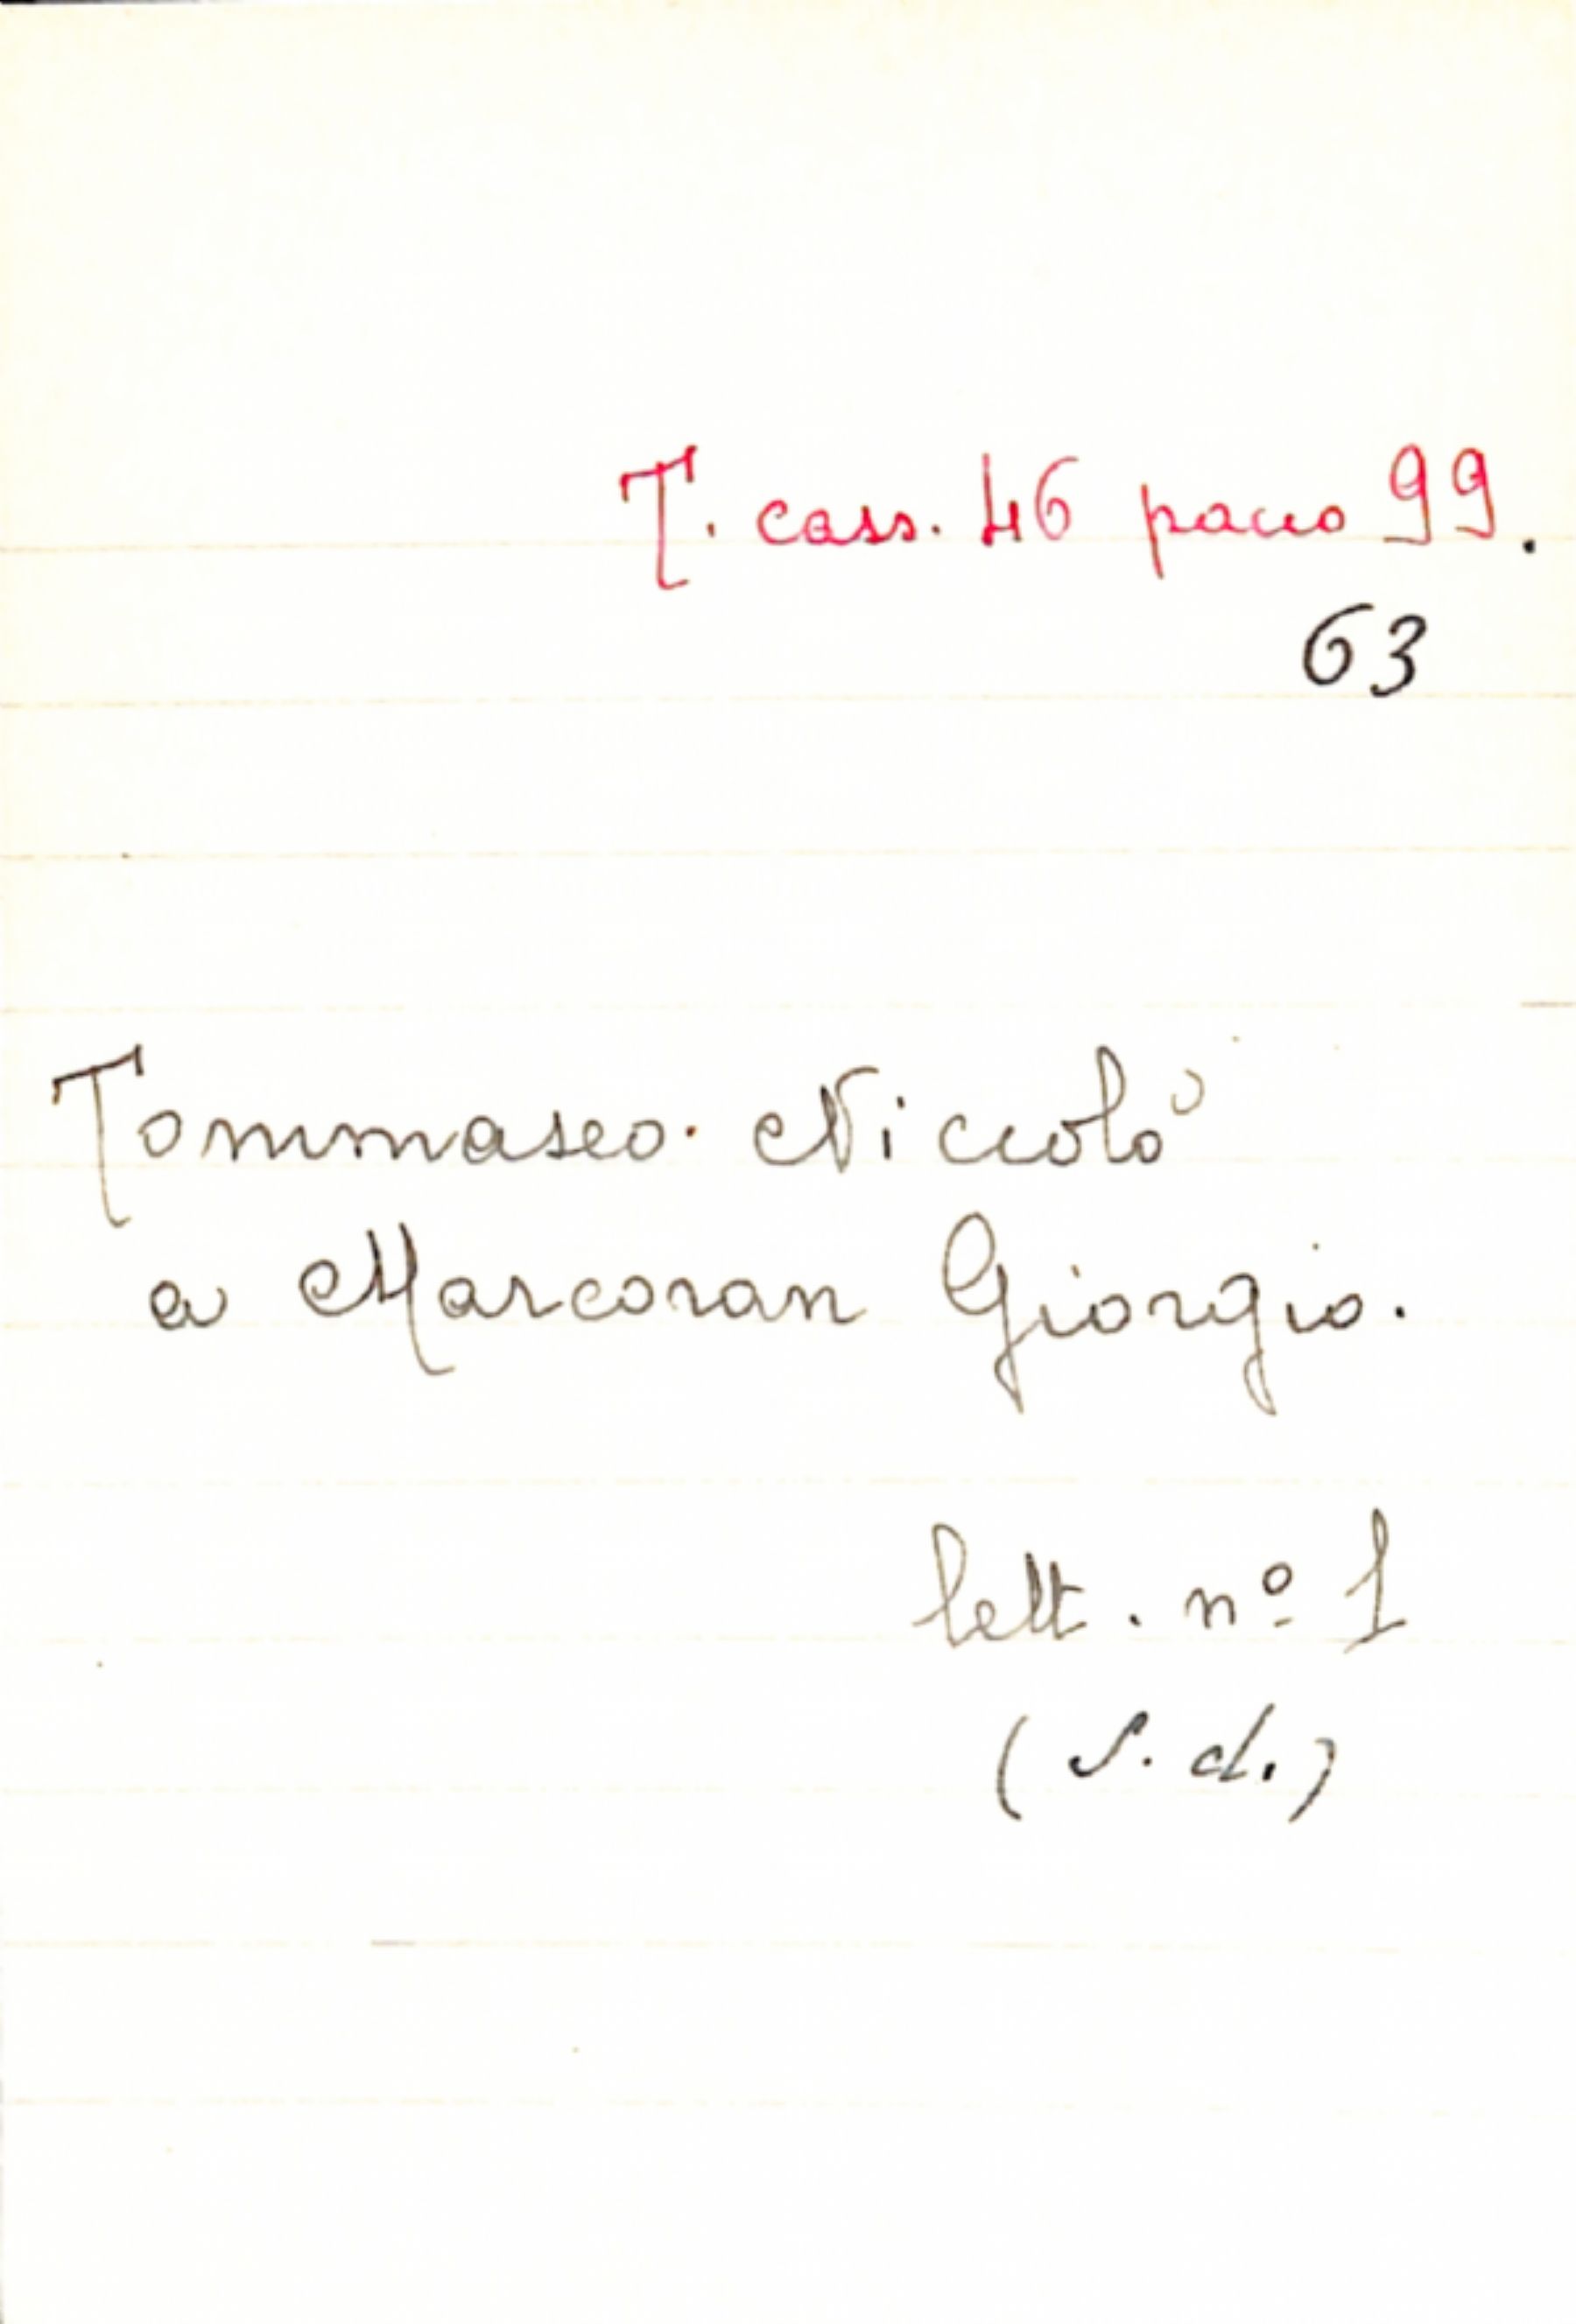 T. cass. 46 pacco 99.
63
Tommaseo. Niccolò
a Marcoran Giorgio.
lett. nº 1
(S. d.)